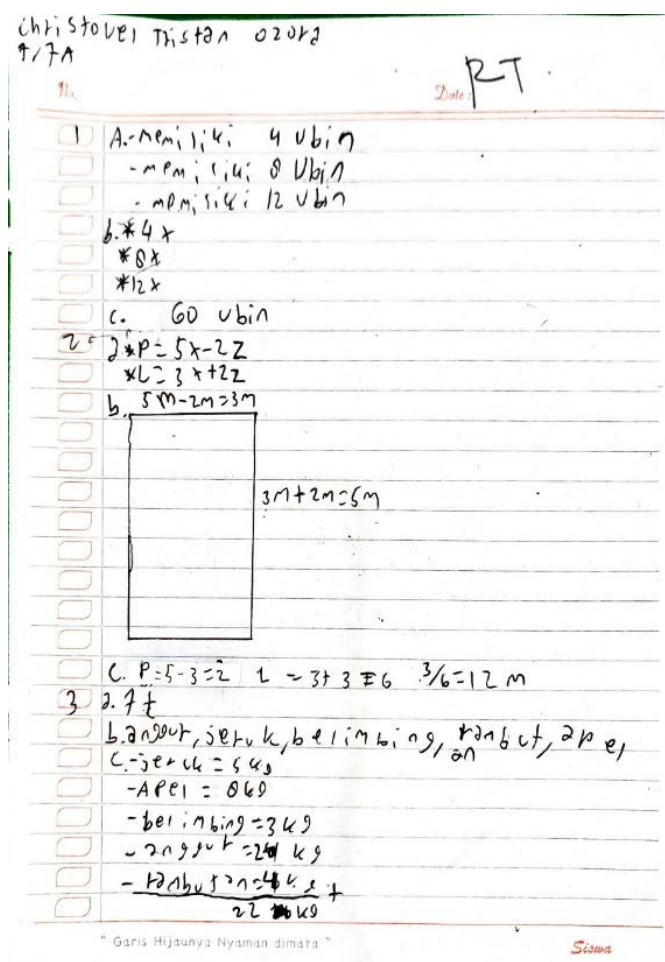 Christovel Tristan Ozora
7/7A
RT
No.
Date:
1 A. - memiliki 4 Ubin
- memiliki 8 Ubin
- memiliki 12 Ubin
b. * 4x
* 8x
* 12x
c. 60 ubin
2 a * P = 5x - 2z
* L = 3x + 2z
b. 5m - 2m = 3m
3m + 2m = 5m
C. P = 5 - 3 = 2 L = 3 + 3 = 6 3/6 = 12 m
3 a. 7 t
b. anggur, jeruk, belimbing, rambutan, apel
C. - jeruk = 5 kg
- Apel = 8 kg
- belimbing = 3 kg
- anggur = 2 kg
- rambutan = 4 kg +
22 kg
" Garis Hijaunya Nyaman dimata "
Siswa